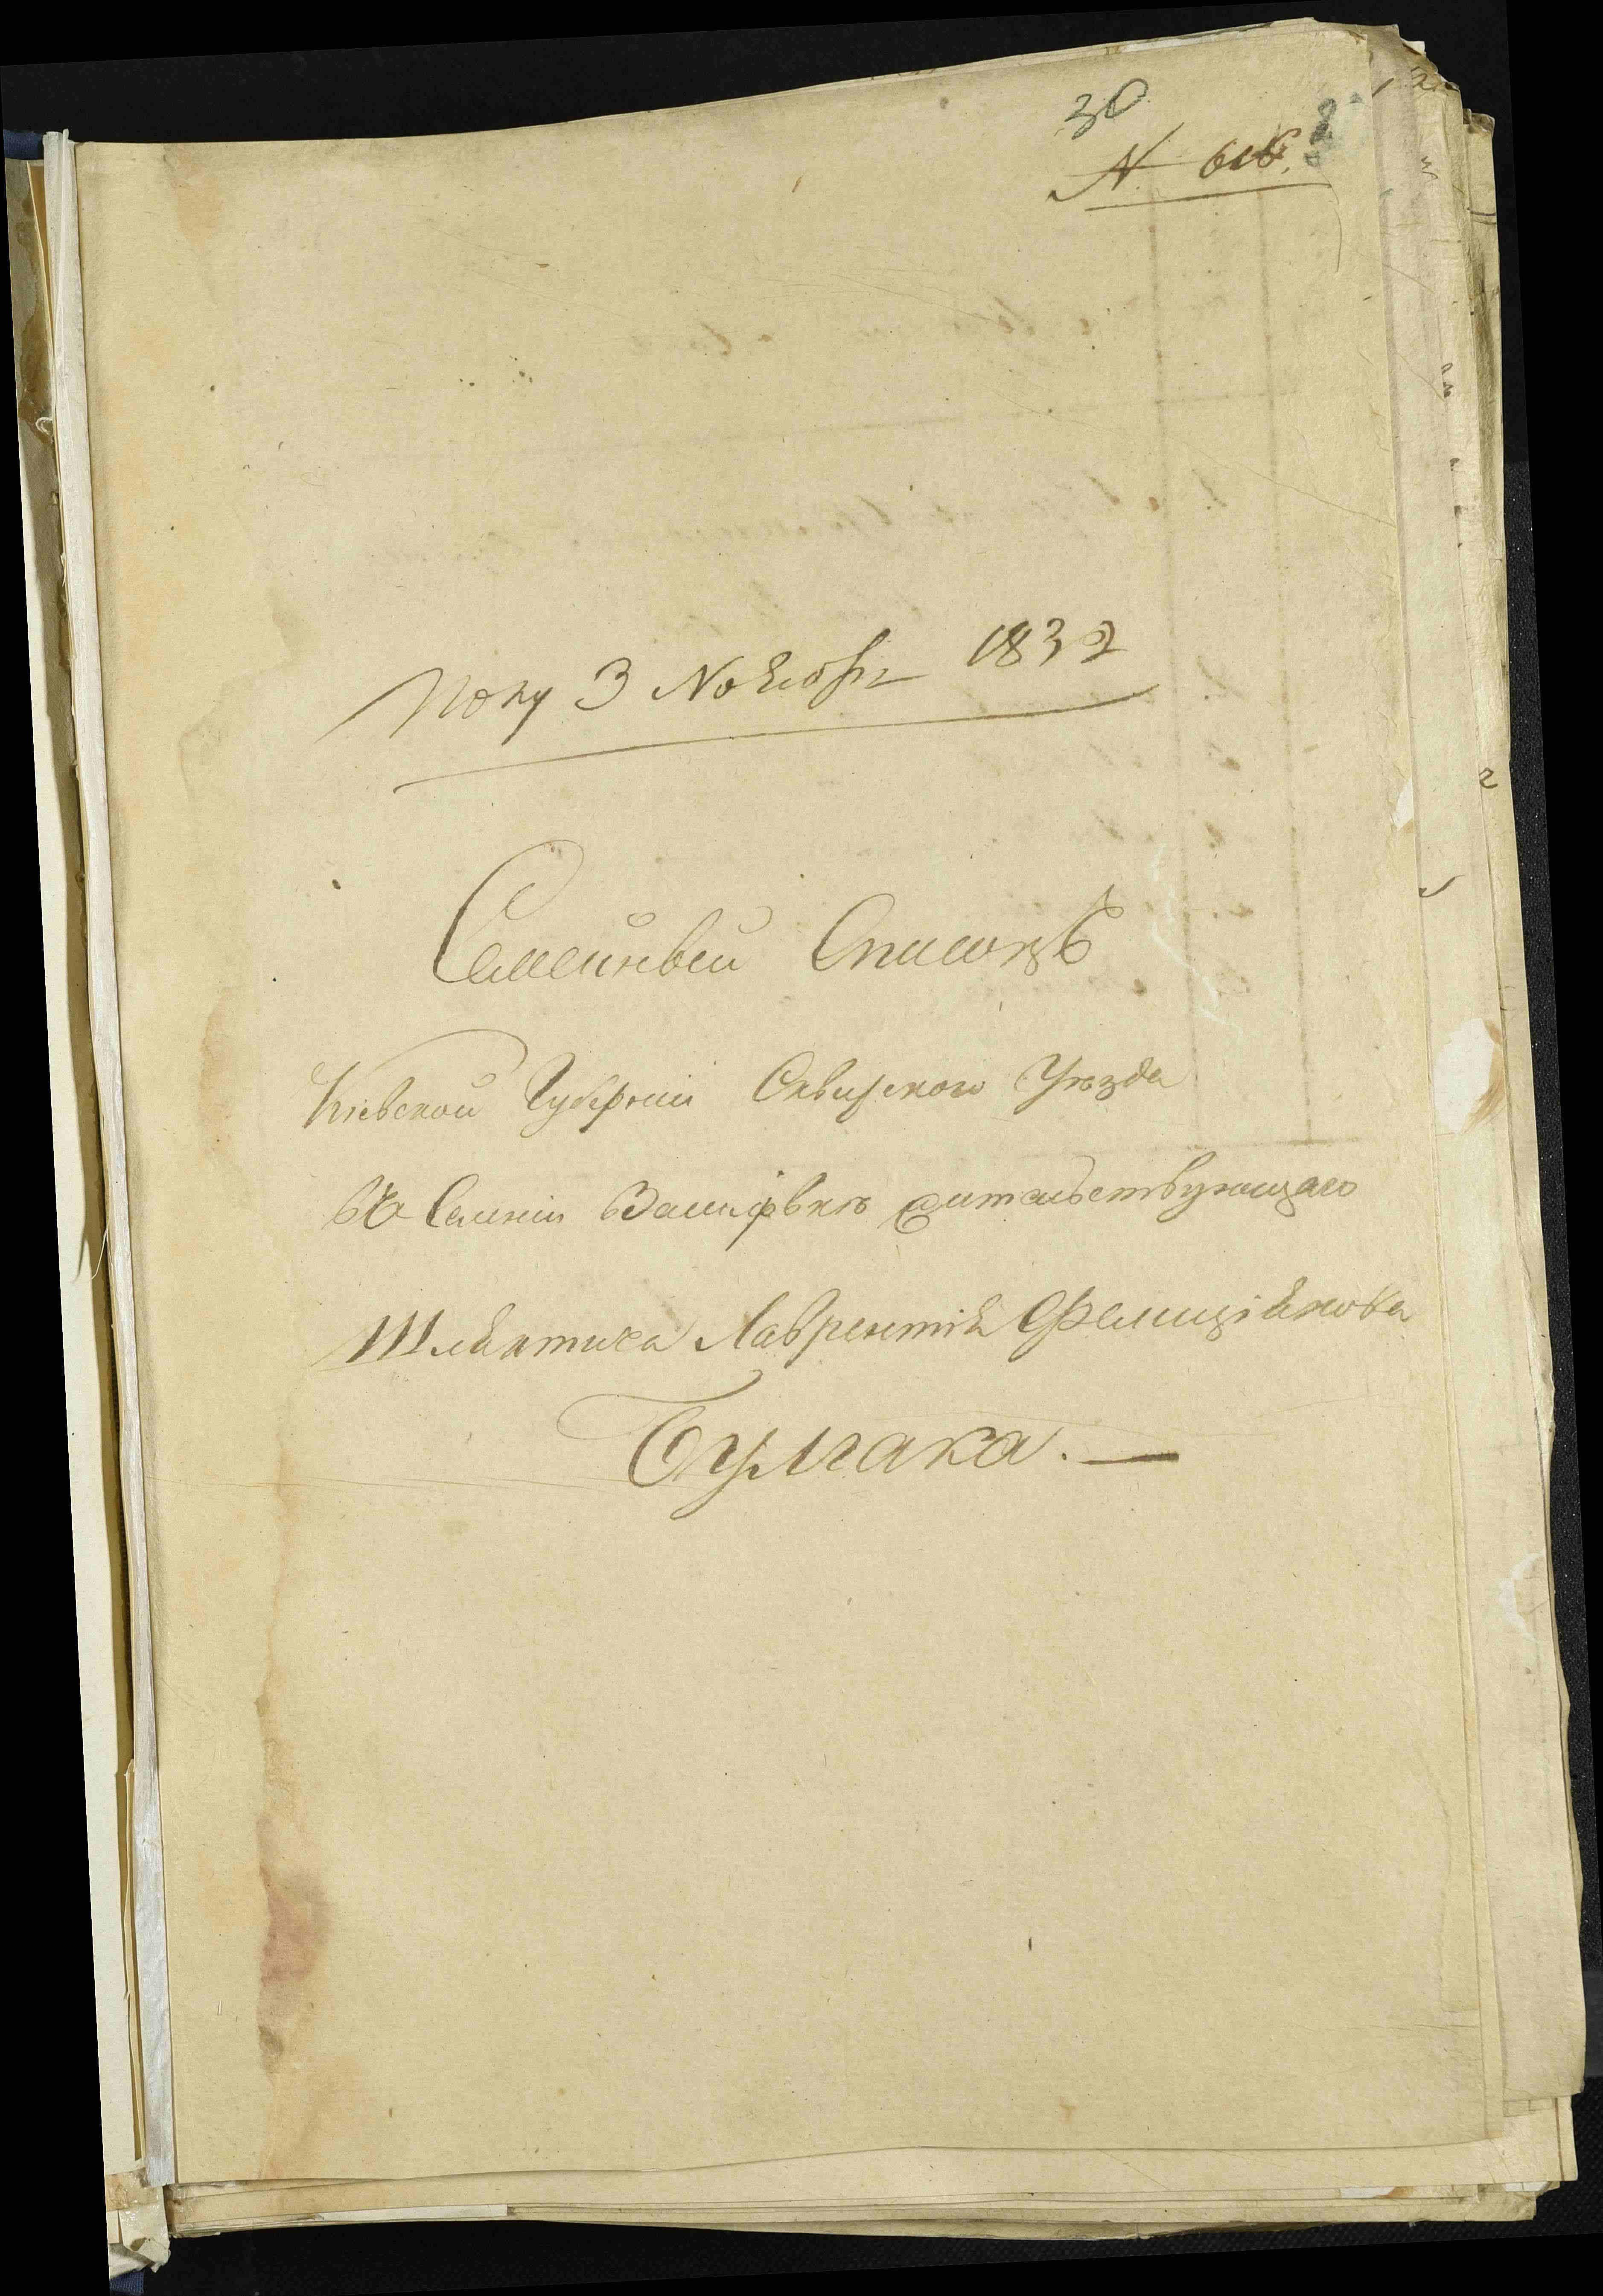 30
N. 616. 8
Полу 3 Ноября 1832
Семейный Списокъ
Кіевской Губерніи Сквирскаго Уѣзда
въ Селеніи жительствующаго
Шляхтича Лаврентія Фелиціянова
Булгака. —